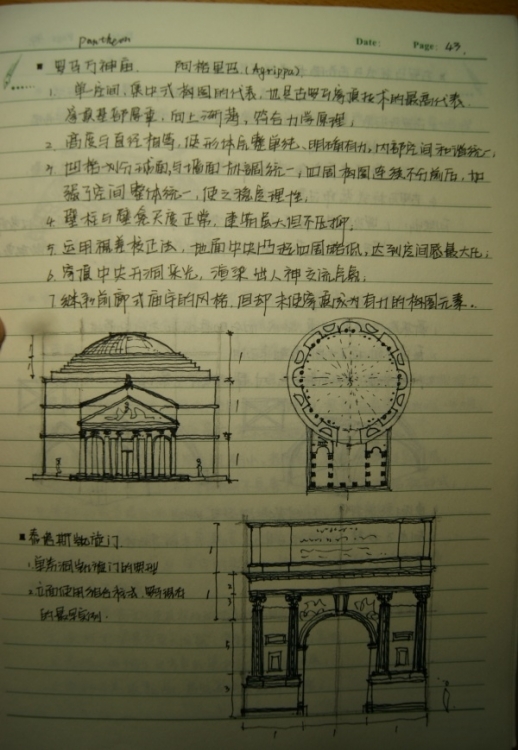 Pantheon Date: Page: 43.
■ 罗马万神庙 阿格里巴 (Agrippa)
1. 单空间、集中式构图的代表,也是古罗马穹顶技术的最高代表.
穹顶基部厚重,向上渐薄,符合力学原理;
2. 高度与直径相等,使形体完整单纯、明确有力,内部空间和谐统一,
3. 四格划分球面与墙面协调统一,四周构图连续不分前后,加
强了空间整体统一,使之稳定理性,
4. 壁柱与壁龛尺度正常,建筑虽大但不压抑,
5. 运用视差校正法,地面中央凸起四周略低,达到空间感最大化;
6. 穹顶中央开洞采光,渲染出人神交流气氛;
7. 继承前廊式庙宇的风格,但却未使穹顶成为有力的构图元素.
1
1
■ 泰塔斯凯旋门
1. 单券洞凯旋门的典型
2. 立面使用组合柱式,罗马现有
的最早实例.
1
1
2
3
5
3
1 1 1